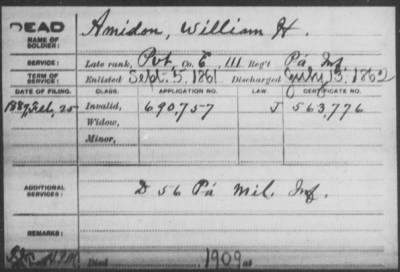 DEAD
NAME OF SOLDIER: Amidon, William H.
SERVICE: Late rank, Pvt. Co. E, 111 Reg't Pa Inf.
TERM OF SERVICE: Enlisted Sept. 5, 1861 Discharged July 13, 1862
DATE OF FILING. CLASS. APPLICATION NO. LAW. CERTIFICATE NO.
1887, Feb, 25 Invalid, 690,757 J 563,776
Widow,
Minor,
ADDITIONAL SERVICES: D 56 Pa Mil. Inf.
REMARKS:
Died 1909 at